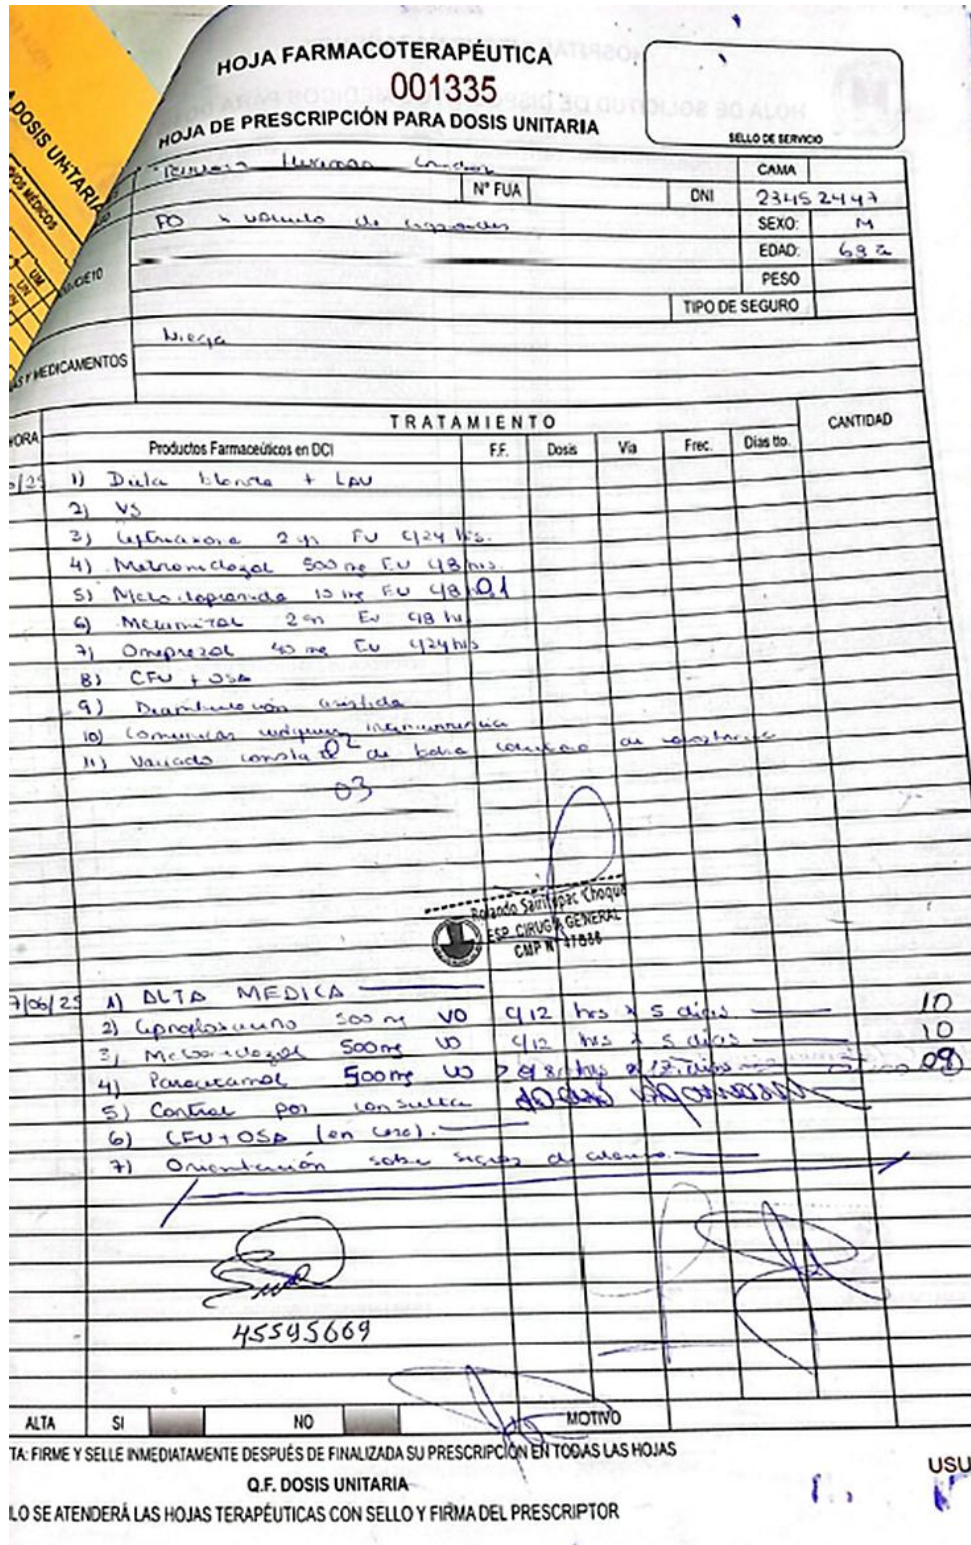 HOJA FARMACOTERAPÉUTICA
001335
HOJA DE PRESCRIPCIÓN PARA DOSIS UNITARIA
SELLO DE SERVICIO
DOSIS UNITARIA
MÉDICOS
UM
CAMA
N° FUA
DNI 23452447
PO de
SEXO: M
EDAD: 68 a
CIE10
PESO
TIPO DE SEGURO
Niega
MEDICAMENTOS
TRATAMIENTO
HORA Productos Farmacéuticos en DCI F.F. Dosis Vía Frec. Días tto. CANTIDAD
1) Dieta blanda + LAV
2) VS
3) Ceftriaxona 2 gr EV c/24 hrs.
4) Metronidazol 500 mg EV c/8 hrs.
5) Metoclopramida 10 mg EV c/8 01
6) Metamizol 2 gr EV c/8 hrs
7) Omeprazol 40 mg EV c/24 hrs
8) CFV + OSA
9) Deambulación asistida
10) Comunicar cualquier
11) Vaciado de
03
Rolando Choque
ESP. CIRUGÍA GENERAL
CMP N°
7/06/25 1) ALTA MEDICA
2) Ciprofloxacino 500 mg VO c/12 hrs x 5 días 10
3) Metronidazol 500mg VO c/12 hrs x 5 días 10
4) Paracetamol 500mg VO 09
5) Control por consulta
6) CFV + OSA (en casa).
7) Orientación sobre signos de alarma.
45595669
ALTA SI NO MOTIVO
TA: FIRME Y SELLE INMEDIATAMENTE DESPUÉS DE FINALIZADA SU PRESCRIPCIÓN EN TODAS LAS HOJAS
USU
Q.F. DOSIS UNITARIA
LO SE ATENDERÁ LAS HOJAS TERAPÉUTICAS CON SELLO Y FIRMA DEL PRESCRIPTOR